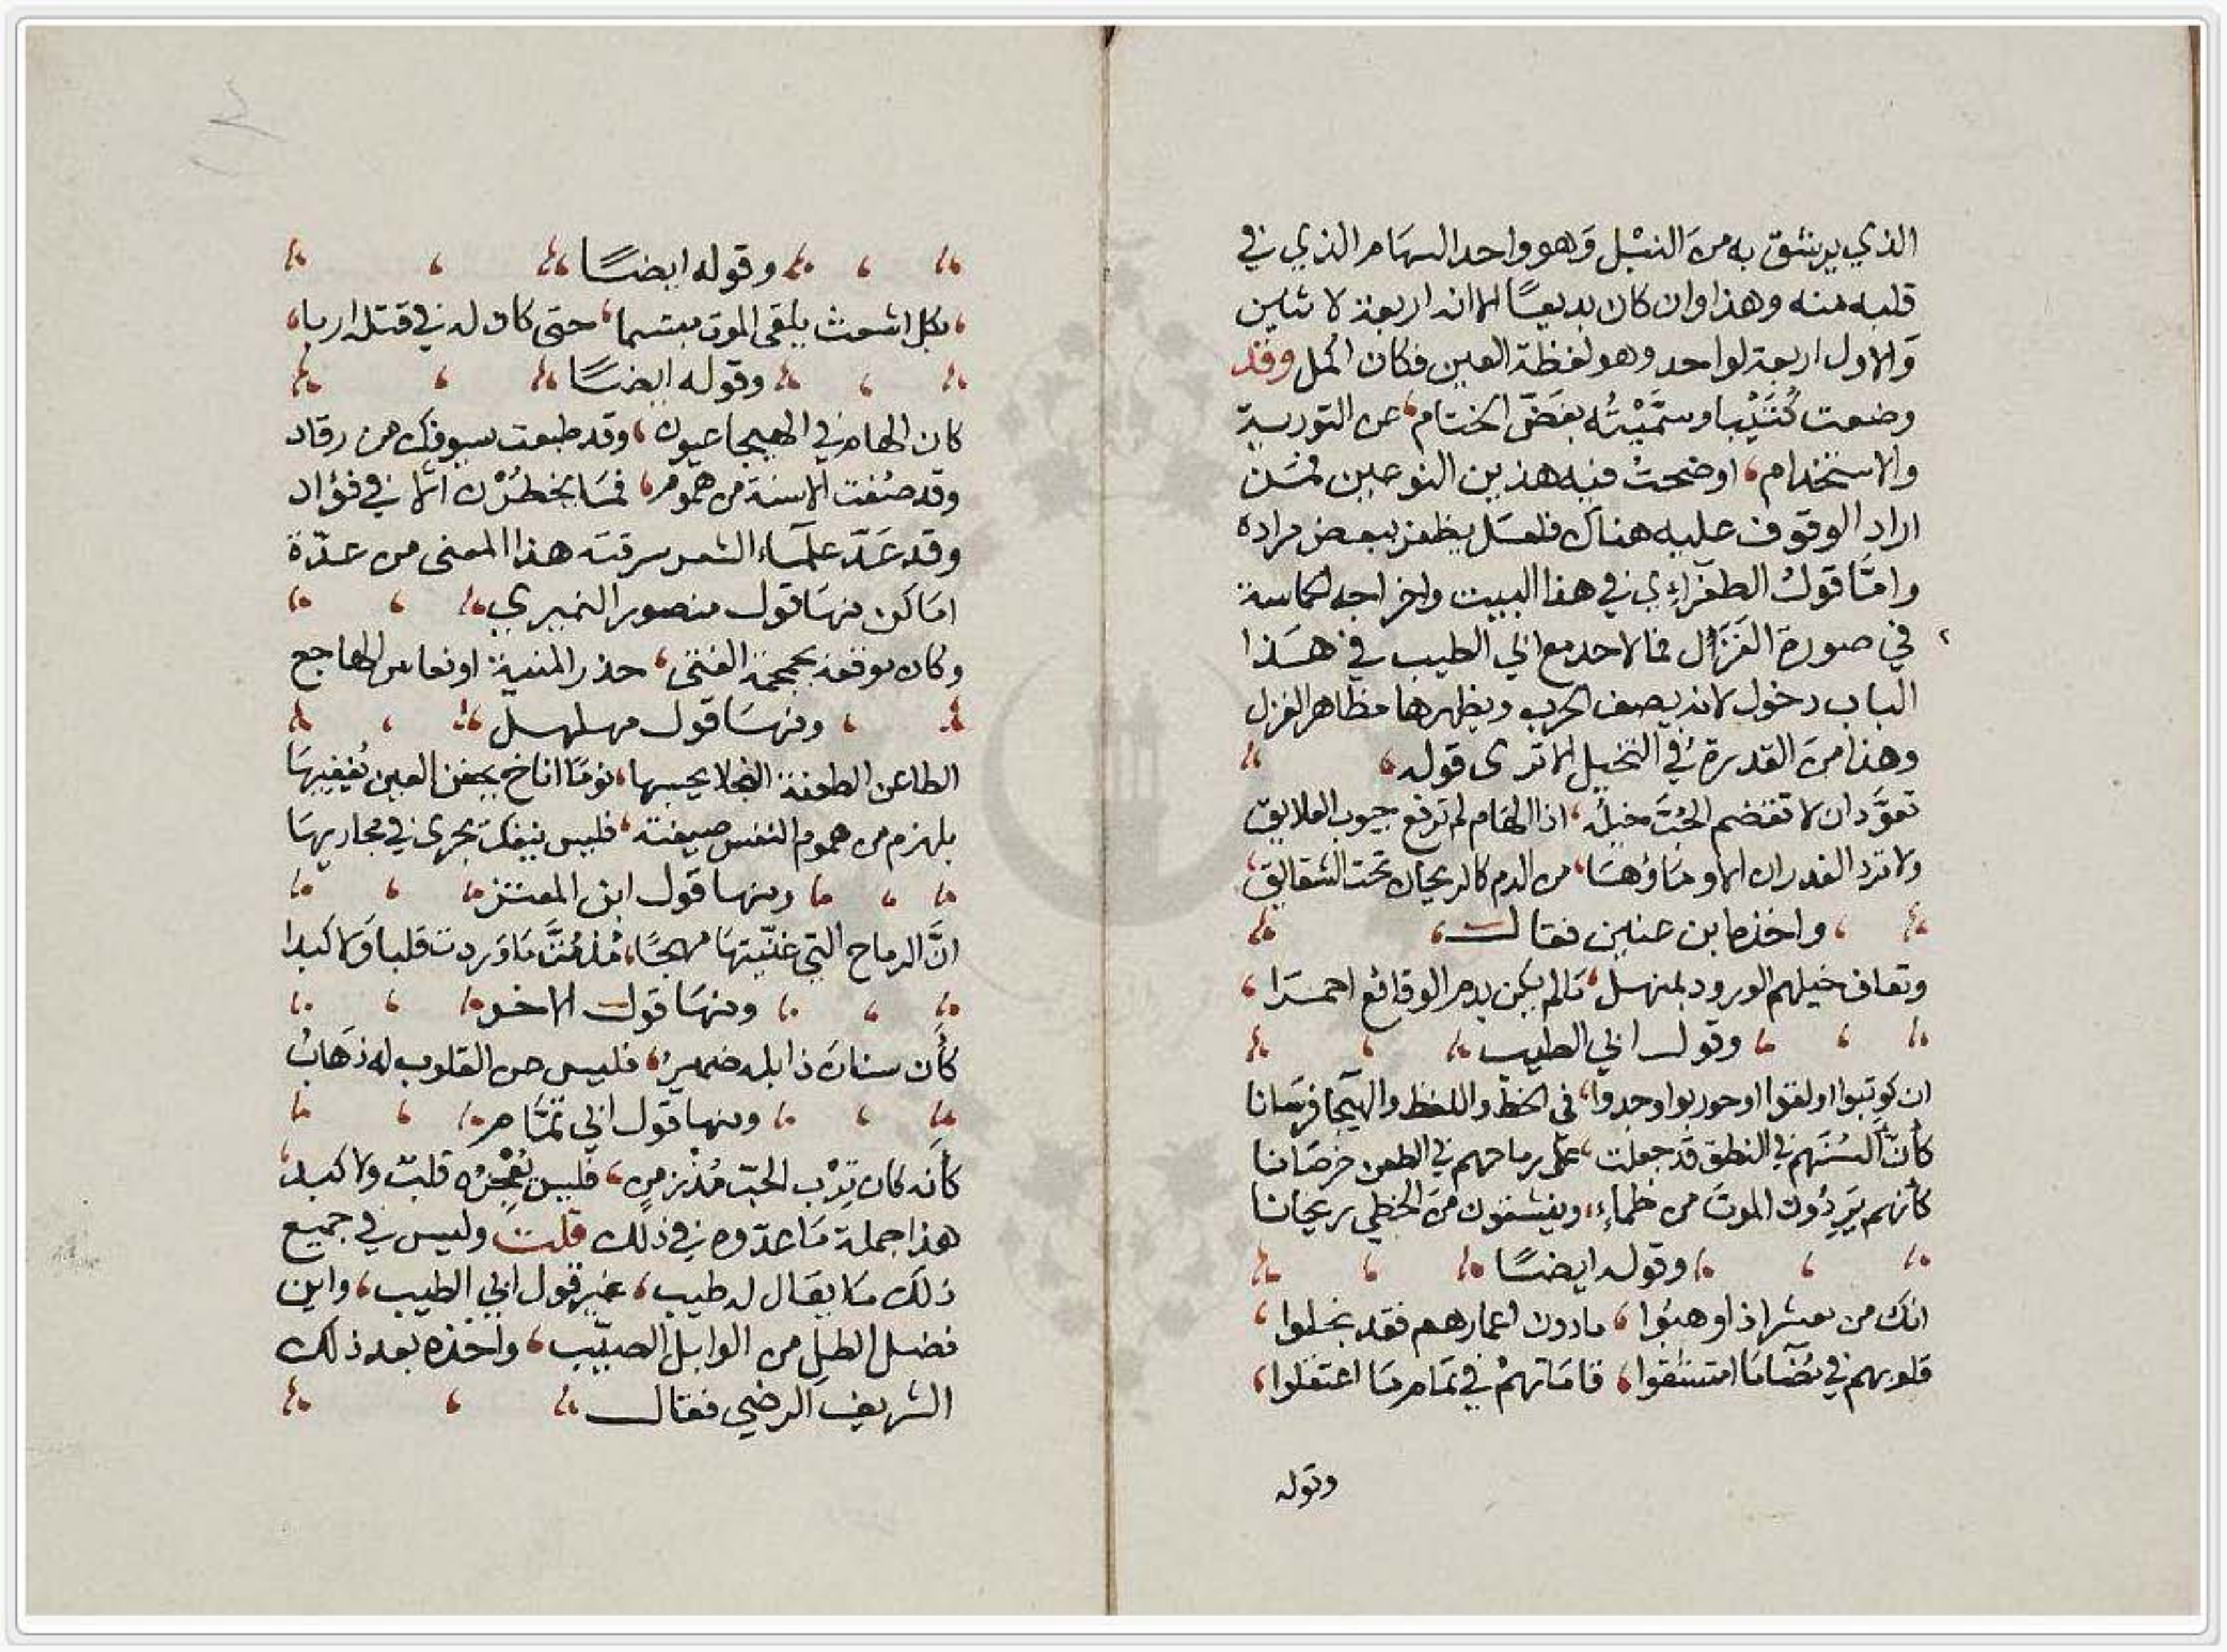 الذي يرشق به من النبل وهو واحد السهام الذي في
قلبه منه وهذا وان كان بديعًا الا انه اربعة لاثنين
والاول اربعة لواحد وهو لفظة العين فكان اكمل وقد
وضعت كُتَيْبا وسمَّيْتُه بفَضّ الختام، عن التورية
والاستخدام، اوضحتُ فيه هذين النوعين فمن
اراد الوقوف عليه هناك فلعله يظفر ببعض مراده
وامّا قول الطغرائي في هذا البيت واخراجه الحماسة
في صورة الغزل فما لاحد مع ابي الطيب في هذا
الباب دخول لانه يصف الحرب ويظهرها مظاهر الغزل
وهذا من القدرة في التخيل الا ترى قوله،
تعوَّد ان لا تقضم الحَبَّ خيله، اذا الهام لم ترفع جيوب العلايق
ولا ترد الغدران الا وماؤها، من الدم كالريحان تحت الشقايق،
واخذه ابن عنين فقال،
وتعاف خيلهم الورود بمنهل، ما لم يكن بدم الوقائع احمرا،
وقول ابي الطيب
ان كوتبوا او لقوا او حوربوا وجدوا، في الخط واللفظ والهيجا فرسانا
كأنّ ألسنهم في النطق قد جعلت، على رماحهم في الطعن خرصانا
كأنهم يَرِدُون الموتَ من ظماء، وينشقون من الخطي ريحانا
وقوله ايضًا
انك من معشر اذا وهبُوا، مادون اعمارهم فقد بخلوا،
قلوبهم في مضآ ما امتشقوا، قاماتهمْ في تمام ما اعتقلوا،
وقوله
وقوله ايضًا
، بكل اشعث يلقى الموت مبتسما، حتى كان له في قتله اربا،
وقوله ايضًا
كان الهام في الهيجا عيون، وقد طبعت سيوفك من رقاد
وقد صُغت الاسنة من هموم، فما يخطُرْن الا في فؤاد
وقد عَدّ علمآء الشعر سرقته هذا المعنى من عدّة
اماكن منها قول منصور النميري
وكان موقعه بجمجمة الفتى، حذر المنية او نعاس الهاجع
ومنها قول مهلهل
الطاعن الطعنة النجلا يحسبها، نومًا اناخ بجفن العين يُغفيها
بلهزم من هموم النفس صيغته، فليس ينفك يجرى في مجاريها
ومنها قول ابن المعتز
انَّ الرماح التي غذّيتها مهجًا، مُذ مُتَّ ما وردت قلبا ولا كبدا
ومنها قول الاخر
كأن سنان ذابله ضميرُ، فليس عن القلوب له ذَهابُ
ومنها قول ابي تمّام
كأنه كان تِرْب الحبّ مُذ زمن، فليس يُعْجِزُه قلبٌ ولا كبد،
هذا جملة ما عدّوه في ذلك قلت وليس في جميع
ذلك ما يقال له طيب، غير قول ابي الطيب، واين
فضل الطل من الوابل الصيّب، واخذه بعد ذلك
الشريف الرضي فقال